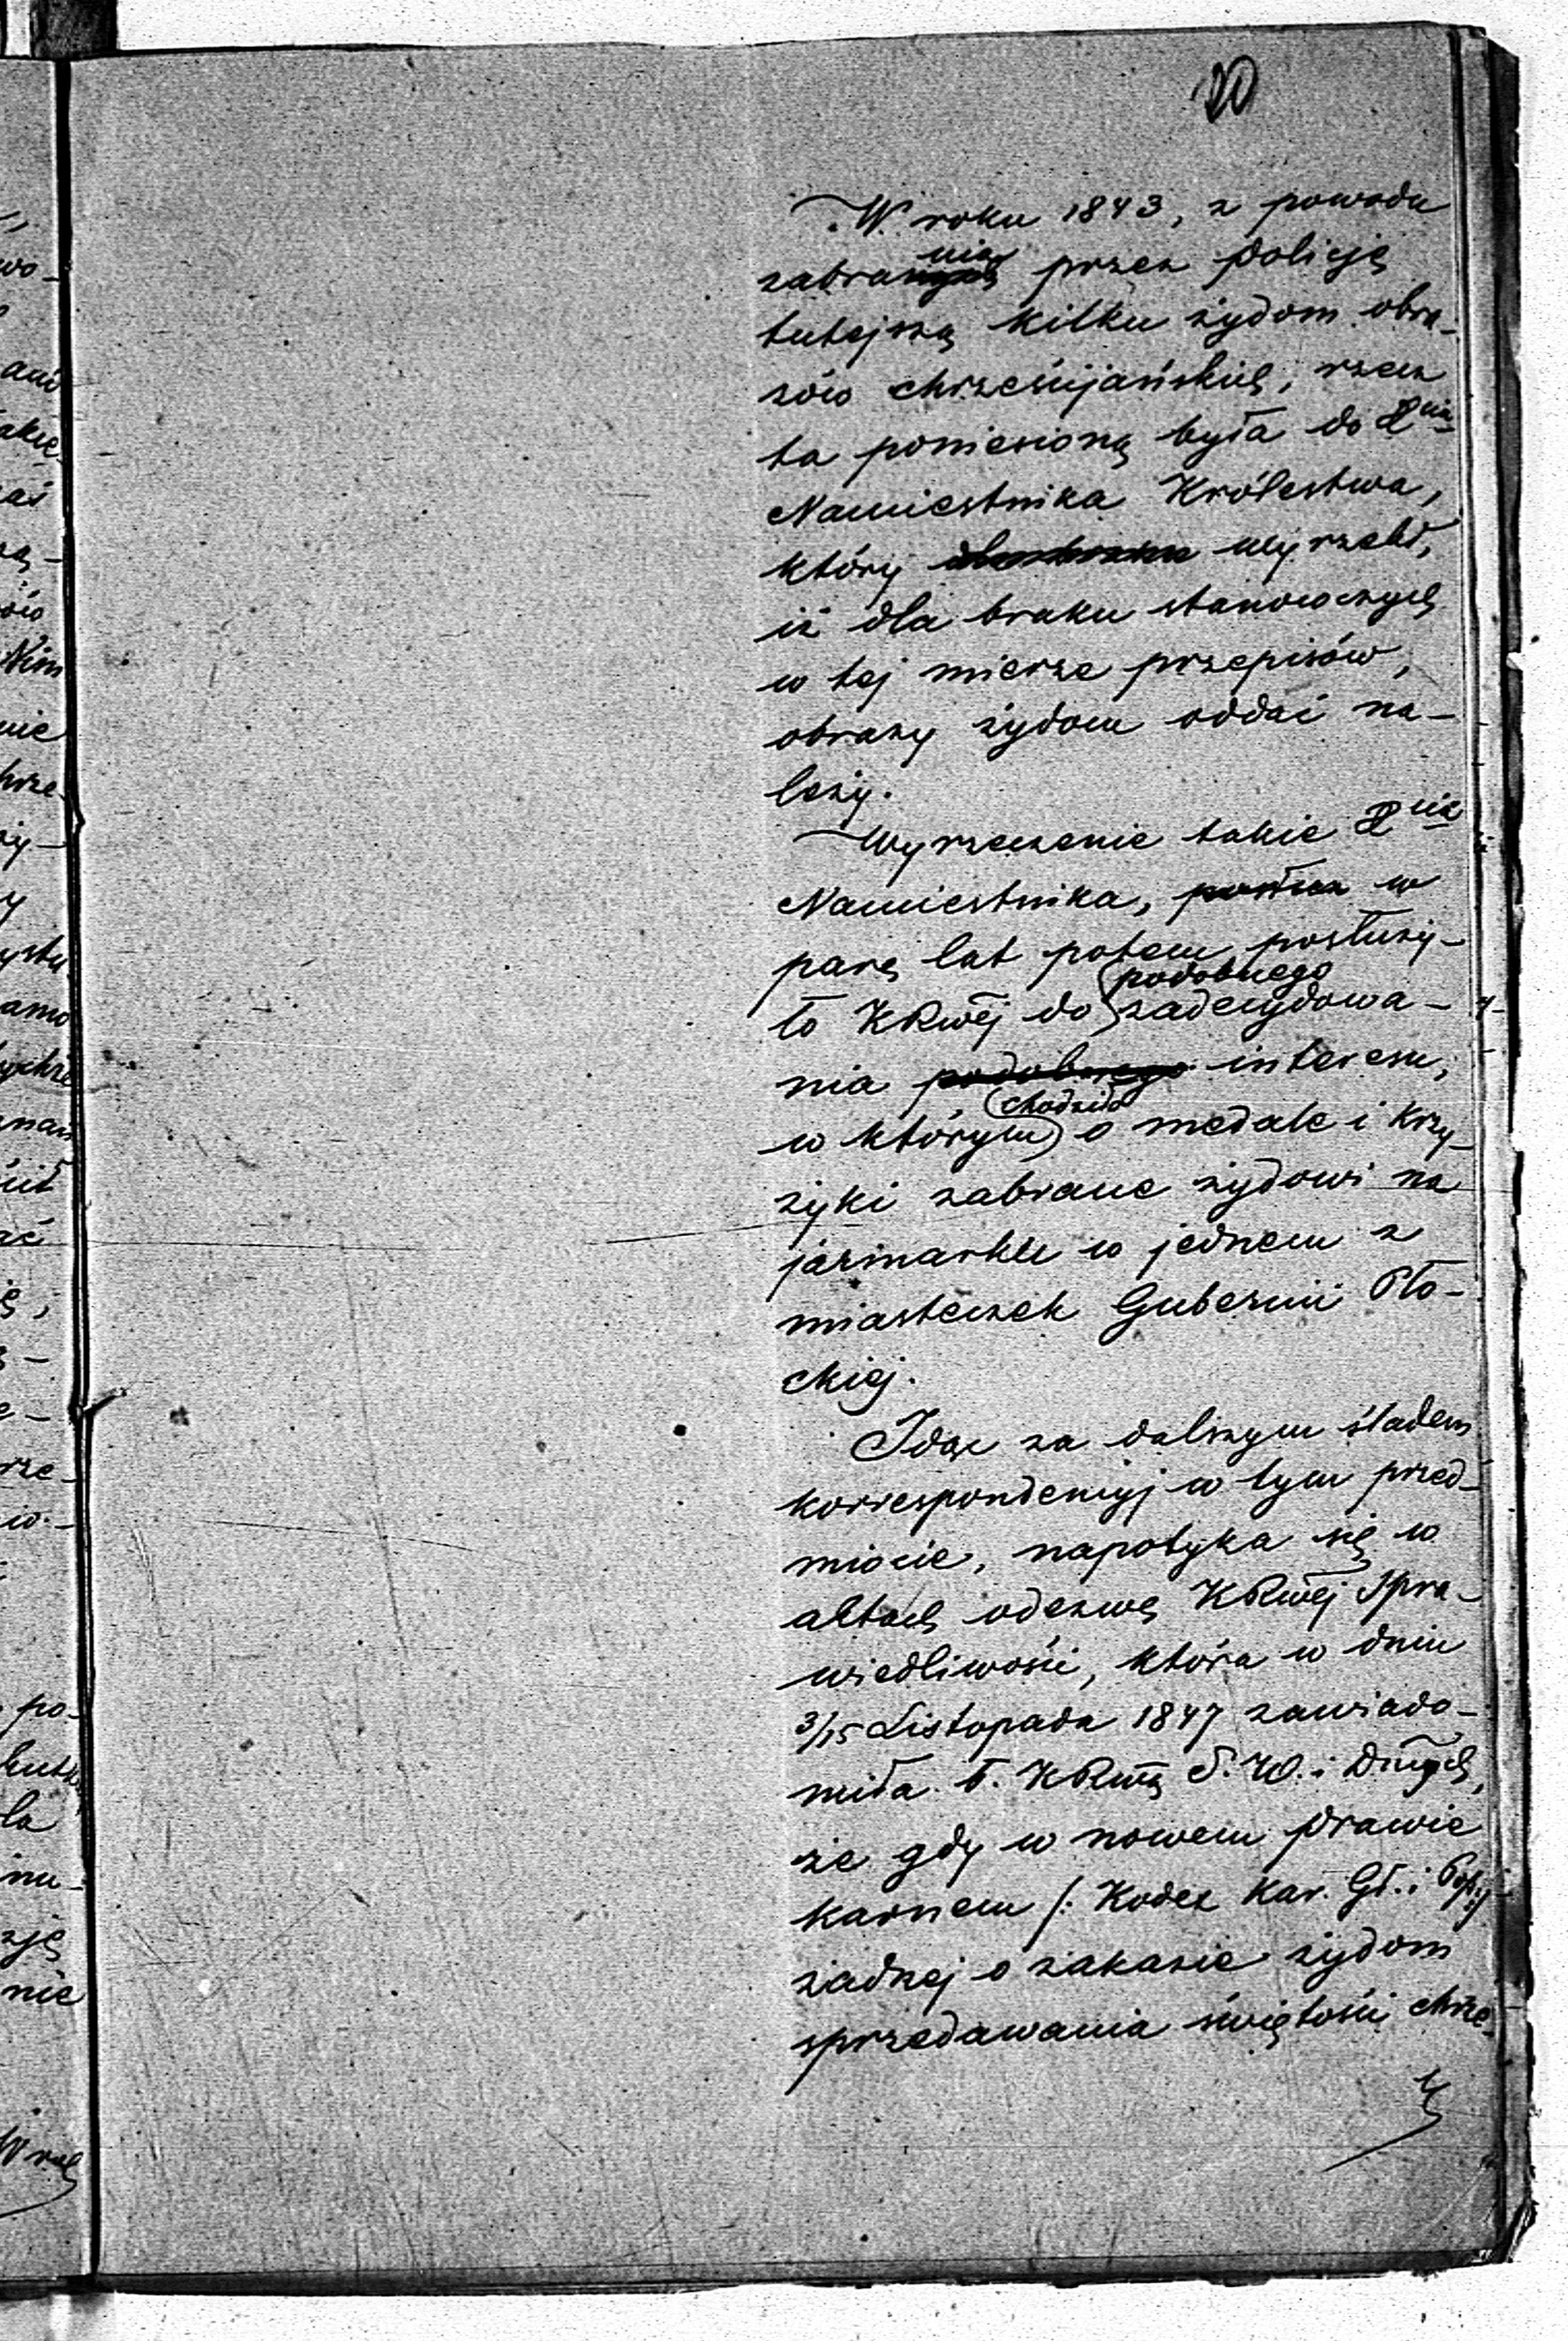 20
W roku 1843, z powodu
zabrania przez Policję
tutejszą kilku żydom obra-
zów chrześcijańskich, rzecz
ta poniesioną była do Xcia
Namiestnika Królestwa,
który wyrzekł,
iż dla braku stanowczych
w tej mierze przepisów,
obrazy żydom oddać na-
leży.
Wyrzeczenie takie Xcia
Namiestnika, w
parę lat potem posłuży-
ło KRwéj do podobnego zadecydowa-
nia podobnego interesu,
w którym chodziło o medale i krzy-
żyki zabrane żydowi na
jarmarku w jednem z
miasteczek Gubernii Pło-
ckiej.
Idąc za dalszym śladem
korrespondencyj w tym przed-
miocie, napotyka się w
aktach odezwę KRwéj Spra-
wiedliwości, która w dniu
3/15 Listopada 1847 zawiado-
miła t. KRwą S. W. i Dnych,
że gdy w nowem prawie
karnem /: Kodex Kar. Gł. i Pop:/
żadnej o zakazie żydom
sprzedawania świętości chrze-